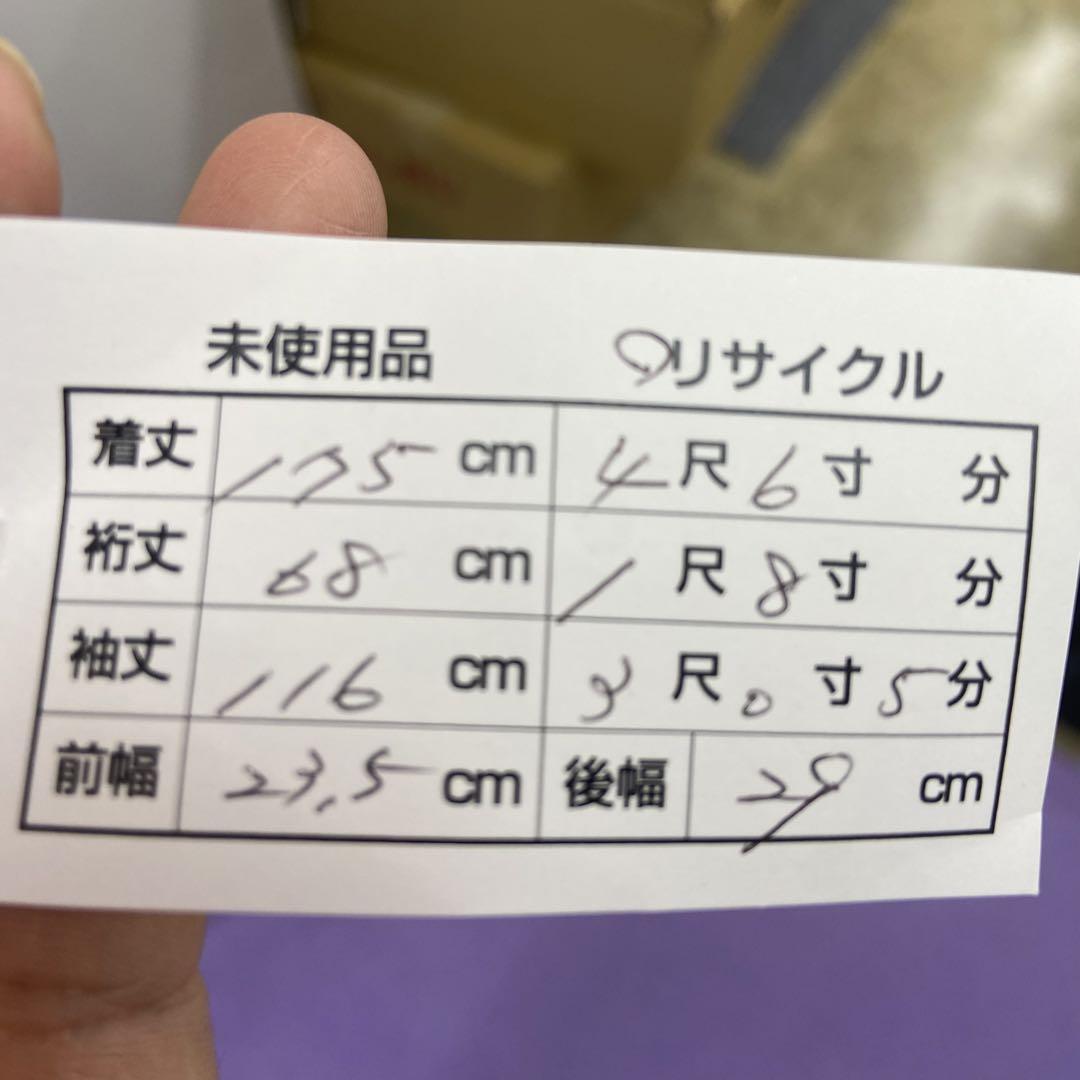 未使用品 リサイクル
着丈 175 cm 4尺6寸 分
裄丈 68 cm 1尺8寸 分
袖丈 116 cm 3尺0寸5分
前幅 23.5 cm 後幅 29 cm